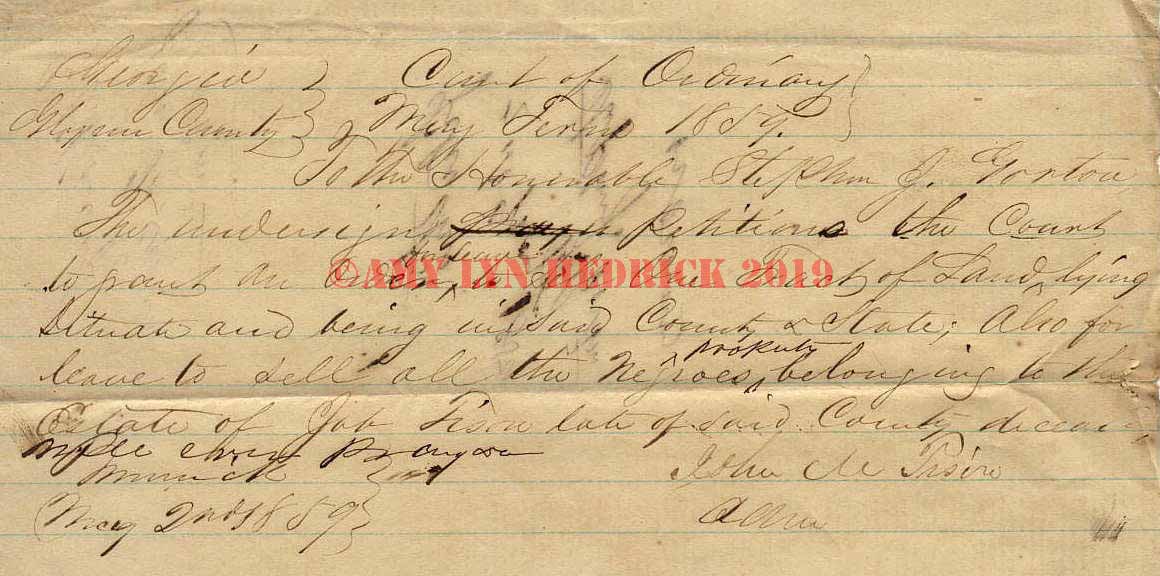 Georgia } Court of Ordinary }
Glynn County } May Term 1859. }
To the Honorable Stephen J. Gorton,
The undersign petitions the Court
to grant an order, to sell one Tract of Land, lying
Situate and being in said County & State; Also for
property
leave to sell all the Negroes, belonging to the
Estate of Job Tison late of said County deceas
©AMY LYN HEDRICK 2019
John M Tison
Admr
May 2nd 1859 }